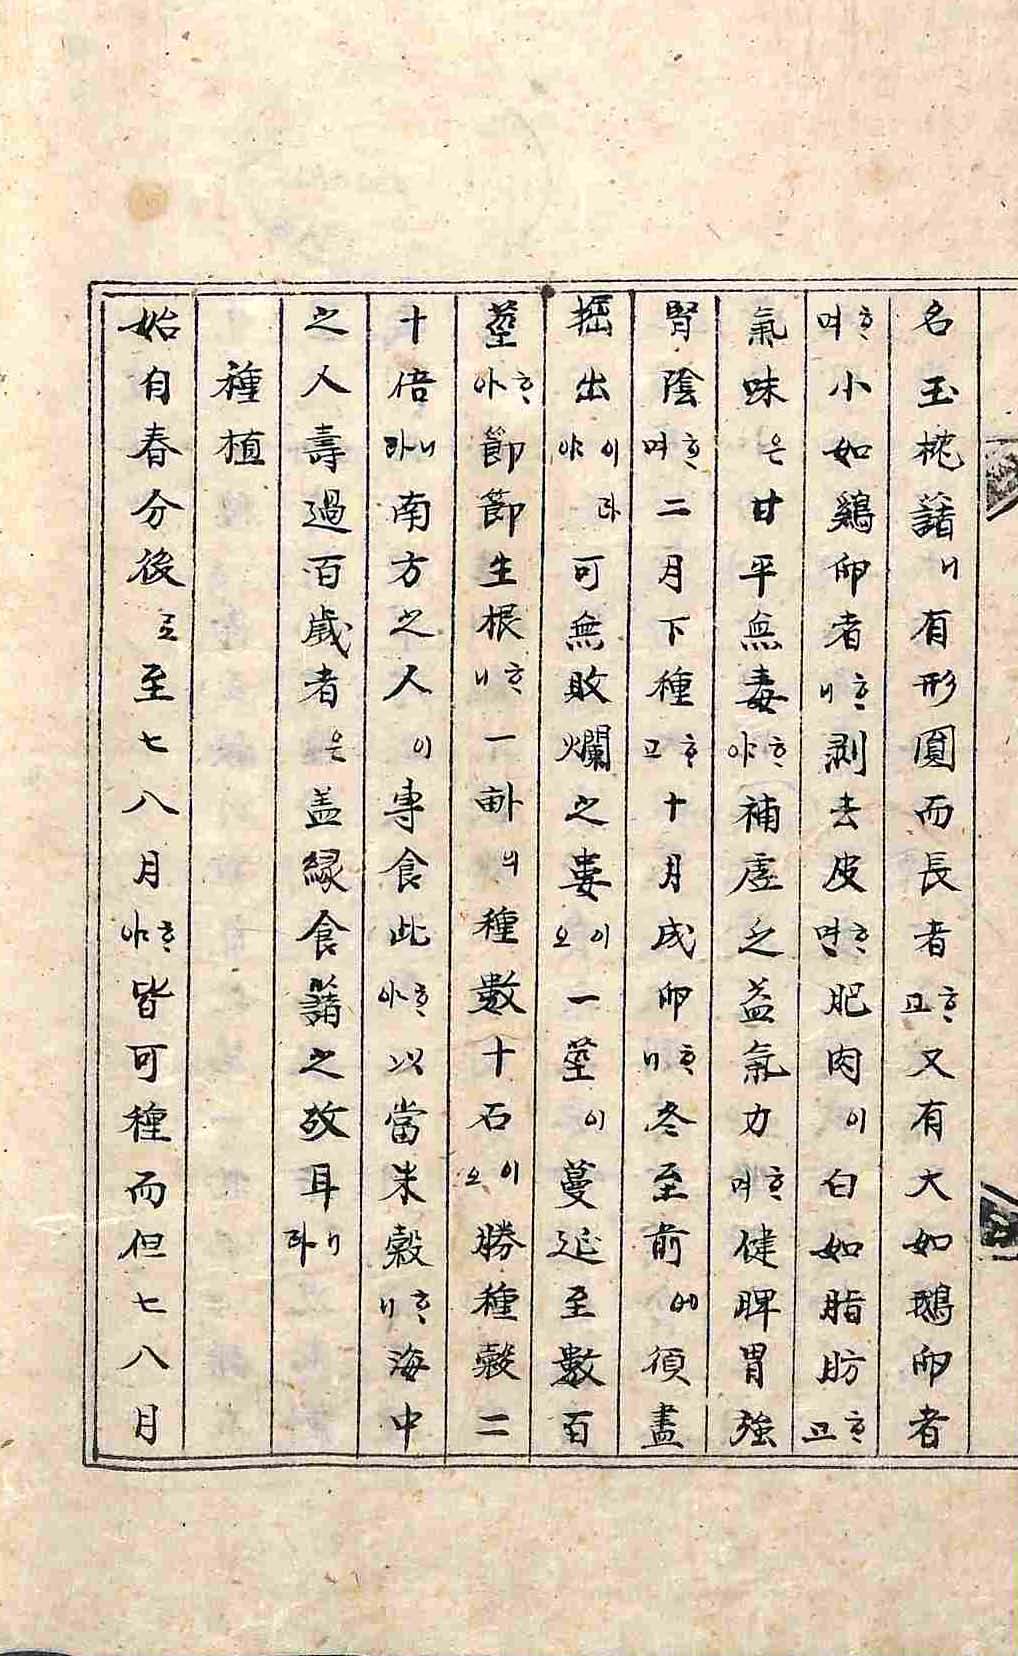 名玉枕藷니有形圓而長者ᄒᆞ고又有大如鵝卵者
ᄒᆞ며小如鷄卵者ᄒᆞ니剥去皮ᄒᆞ면肥肉이白如脂肪ᄒᆞ고
氣味은甘平無毒ᄒᆞ야補虛乏益氣力ᄒᆞ며健脾胃強
腎陰ᄒᆞ며二月下種ᄒᆞ고十月成卵ᄒᆞ니冬至前에須盡
掘出이라야可無敗爛之婁이오一莖이蔓延至數百
莖ᄒᆞ야節節生根ᄒᆞ니一畝의種數十石이오勝種穀二
十倍니라南方之人이專食此ᄒᆞ야以當米穀ᄒᆞ니海中
之人壽過百歲者은盖緣食藷之故耳니라
種植
始自春分後로至七八月ᄒᆞ야皆可種而但七八月